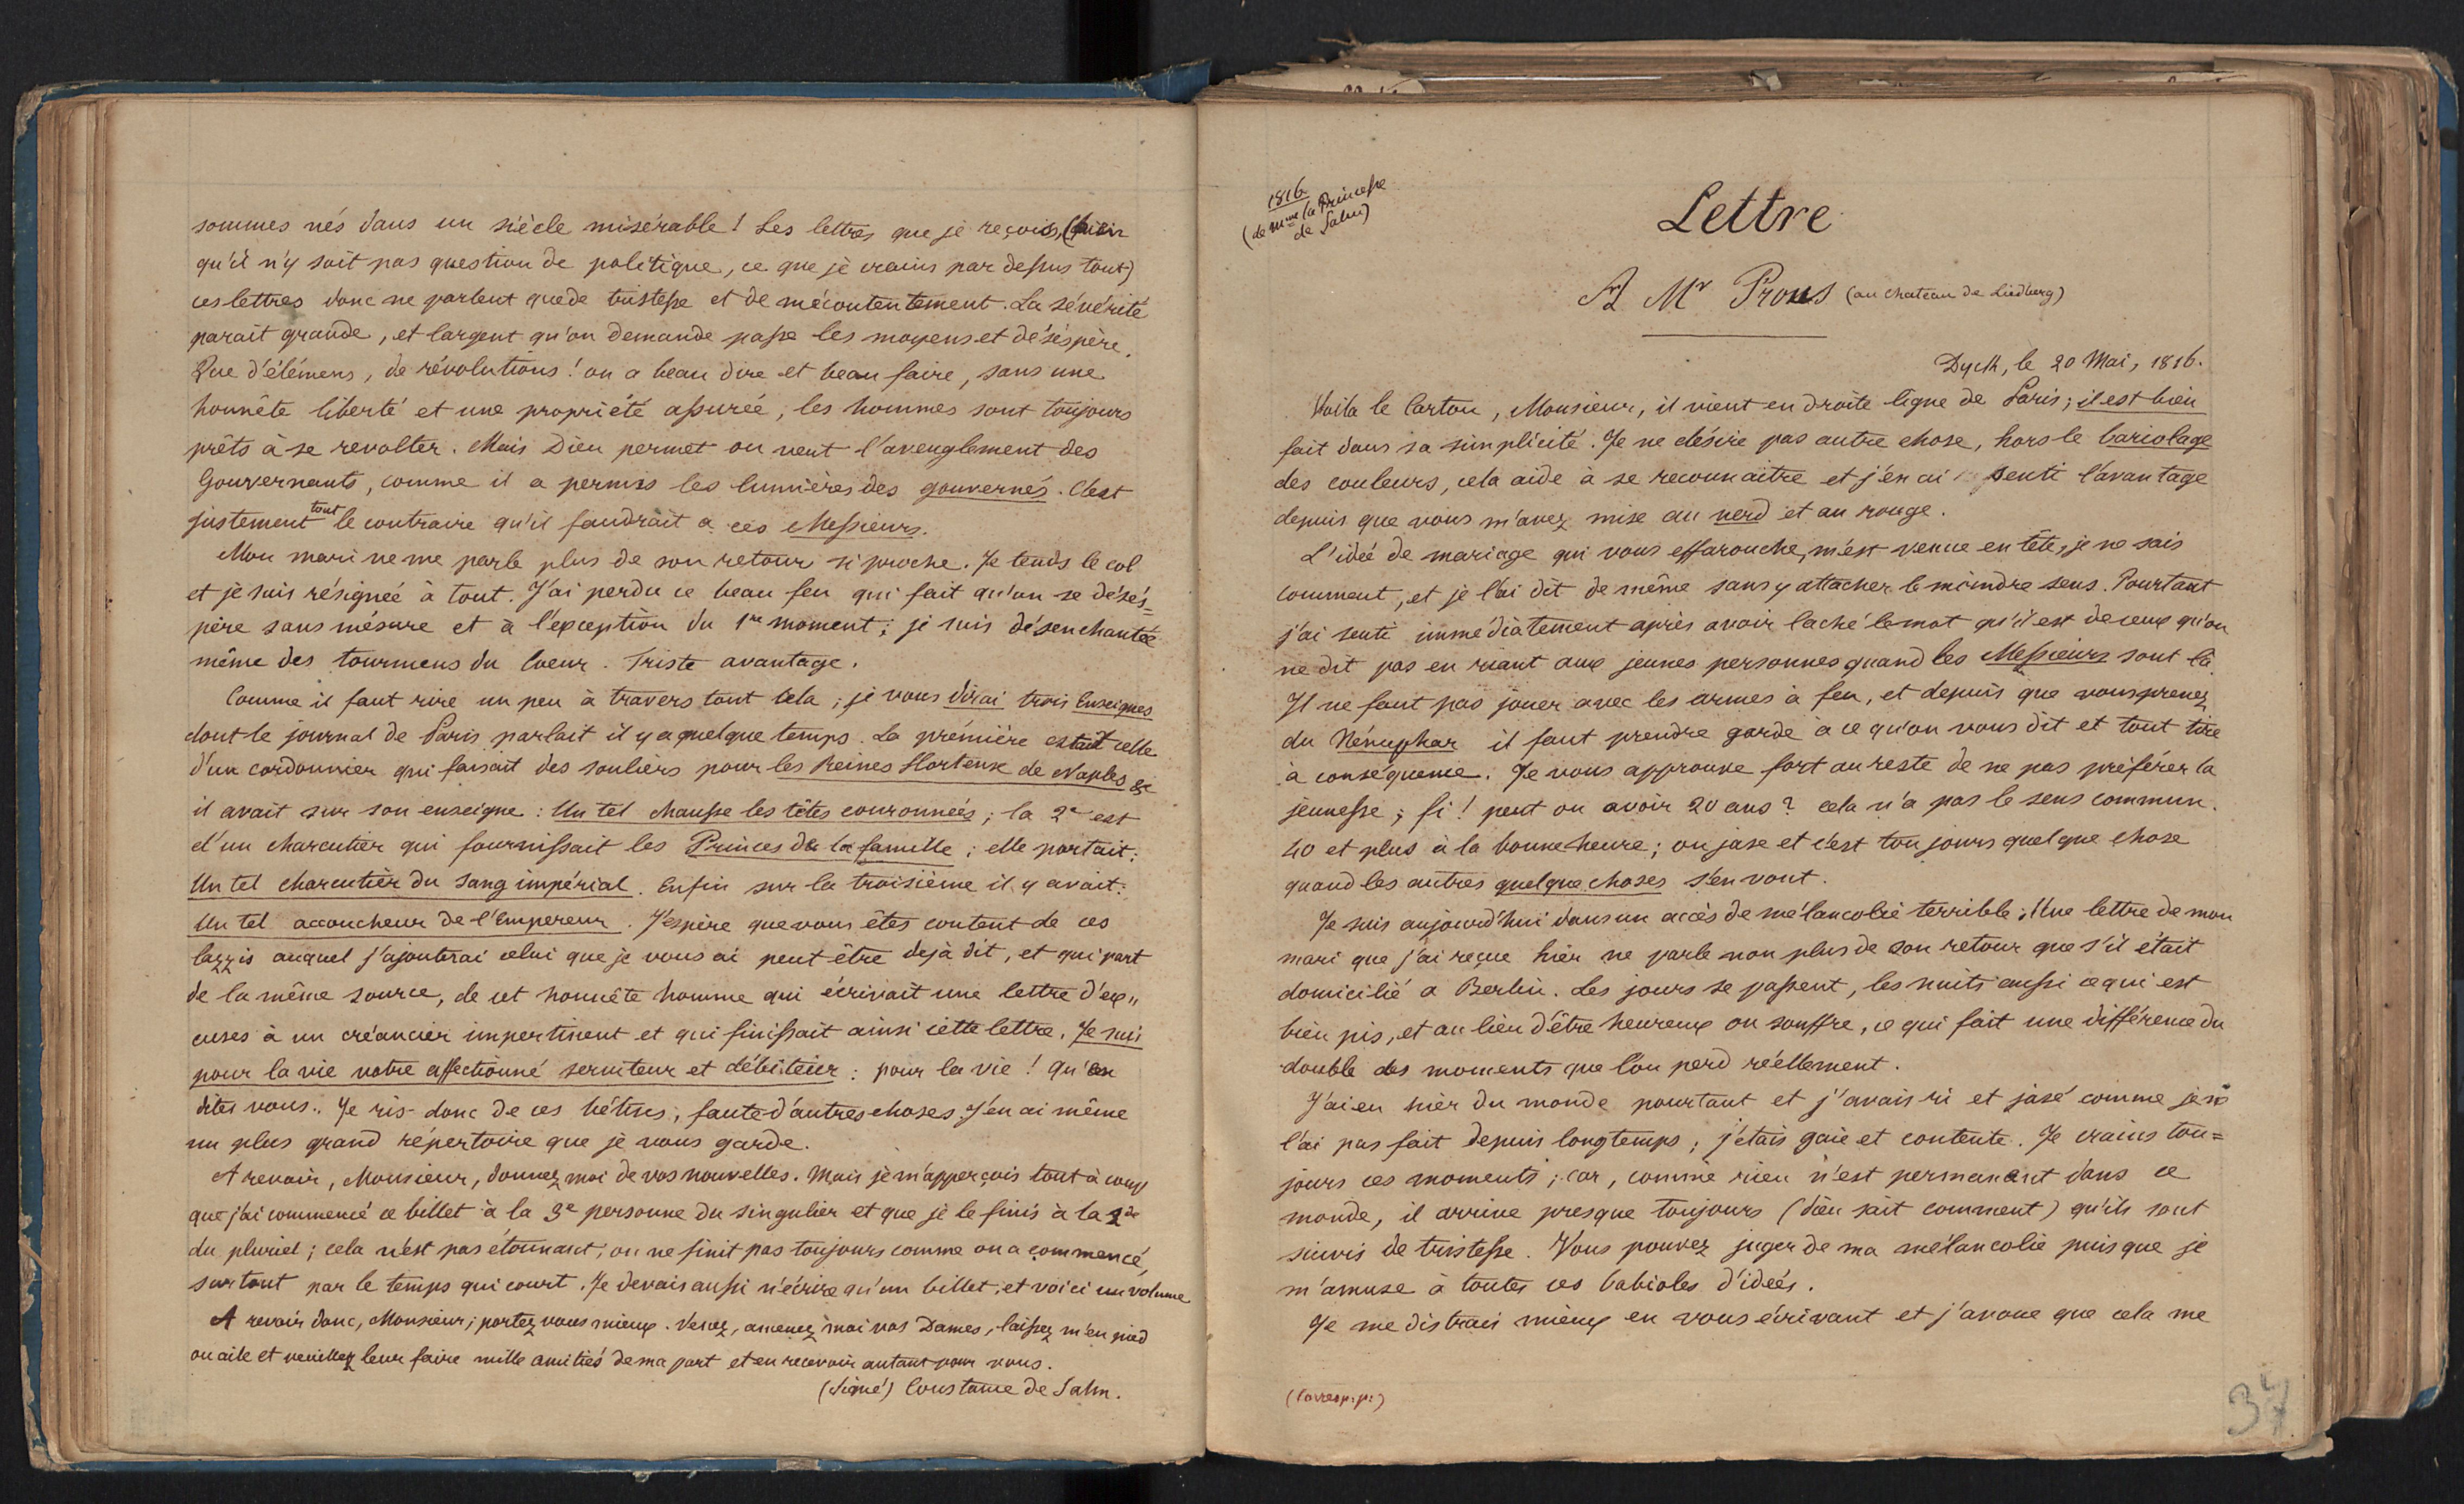 sommes nés dans un siècle misérable ! Les lettres que je reçois, (bien
qu'il n'y soit pas question de politique, ce que je crains par dessus tout)
ces lettres donc ne parlent que de tristesse et de mécontentement. La sévérité
parait grande, et l'argent qu'on demande passe les moyens et désèspère.
Que d'élémens, de révolutions ! on a beau dire et beau faire, sans une
honnête liberté et une propriété assurée, les hommes sont toujours
prêts à se revolter. Mais Dieu permet ou veut l'aveuglement des
Gouvernants, comme il a permis les lumières des gouvernés. C'est
justement tout le contraire qu'il faudrait a ces Messieurs.
Mon mari ne me parle plus de son retour si proche. Je tends le col
et je suis résignée à tout. J'ai perdu ce beau feu qui fait qu'on se désés=
père sans mésure et à l'exception du 1er moment ; je suis désenchantée
même des tourmens du Coeur. Triste avantage.
Comme il faut rire un peu à travers tout cela ; je vous dirai trois Enseignes
dont le journal de Paris parlait il y a quelque temps. La première était celle
d'un cordonnier qui faisait des souliers pour les Reines Hortense de Naples &c
il avait sur son enseigne : Un tel chausse les têtes couronnées ; la 2e est
d'un charcutier qui fournissait les Princes de la famille ; elle portait :
Un tel charcutier du Sang impérial. Enfin sur la troisième il y avait :
Un tel accoucheur de l'Empereur. J'espère que vous êtes content de ces
lazzis auquel j'ajouterai celui que je vous ai peut être dejà dit, et qui part
de la même source, de cet honnête homme qui écrivait une lettre d'ex"
cuses à un créancier impertinent et qui finissait ainsi cette lettre. Je suis
pour la vie votre affectionné serviteur et débiteur : pour la vie ! Qu'en
dites vous. Je ris donc de ces bétises, faute d'autres choses. J'en ai même
un plus grand répertoire que je vous garde.
A revoir, Monsieur, donnez moi de vos nouvelles. Mais je m'apperçois tout à coup
que j'ai commencé ce billet à la 3e personne du singulier et que je le finis à la 2de
du pluriel ; cela n'est pas étonnant, on ne finit pas toujours comme on a commencé,
surtout par le temps qui court. Je devais aussi n'écrire qu'un billet, et voici un volume
A revoir donc, Monsieur ; portez vous mieux. Venez, amenez moi vos Dames, laissez m'en pied
ou aile et veuillez leur faire mille amitiés de ma part et en recevoir autant pour vous.
(Signé) Constance de Salm.
1816
(de Mme la Princesse
de Salm)
Lettre
A Mr Prous (au chateau de Liedberg)
Dyck, le 20 Mai, 1816.
Voila le Carton, Monsieur, il vient en droite ligne de Paris ; il est bien
fait dans sa simplicité. Je ne désire pas autre chose, hors le bariolage
des couleurs, cela aide à se reconnaitre et j'en ai senti l'avantage
depuis que vous m'avez mise au verd et au rouge.
L'idée de mariage qui vous effarouche, m'est venue en tête, je ne sais
comment, et je l'ai dit de même sans y attacher le moindre sens. Pourtant
j'ai senti immédiatement après avoir laché le mot qu'il est de ceux qu'on
ne dit pas en riant aux jeunes personnes quand les Messieurs sont là.
Il ne faut pas jouer avec les armes à feu, et depuis que vous prenez
du Nénuphar il faut prendre garde à ce qu'on vous dit et tout tire
à conséquence. Je vous approuve fort au reste de ne pas préférer la
jeunesse ; fi ! peut on avoir 20 ans ? cela n'a pas le sens commun.
40 et plus à la bonne heure ; on jase et c'est toujours quelque chose
quand les autres quelque choses s'en vont.
Je suis aujourd'hui dans un accès de mélancolie terrible ; Une lettre de mon
mari que j'ai reçue hier ne parle non plus de son retour que s'il était
domicilié a Berlin. Les jours se passent, les nuits aussi ce qui est
bien pis, et au lieu d'être heureux on souffre, ce qui fait une différence du
double des moments que l'on perd réellement.
J'ai eu hièr du monde pourtant et j'avais ri et jasé comme je ne
l'ai pas fait depuis longtemps ; j'étais gaie et contente. Je crains tou=
jours ces moments ; car, comme rien n'est permanent dans ce
monde, il arrive presque toujours (dieu sait comment) qu'ils sont
suivis de tristesse. Vous pouvez juger de ma mélancolie puis que je
m'amuse à toutes ces babioles d'idées.
Je me distrais mieux en vous écrivant et j'avoue que cela me
(Corresp. p.)